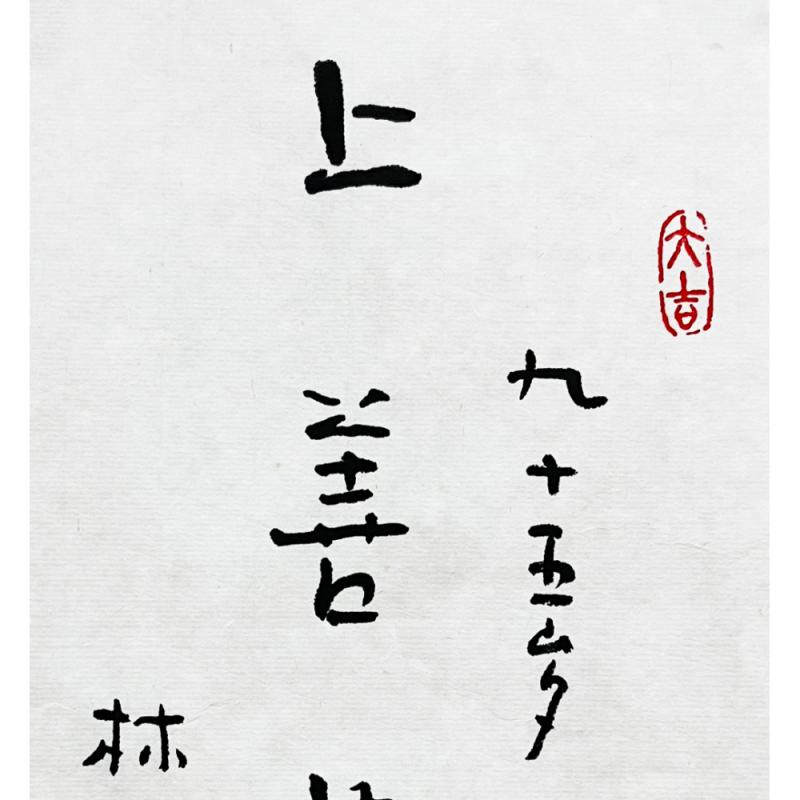 大吉
九十五岁
上善
林